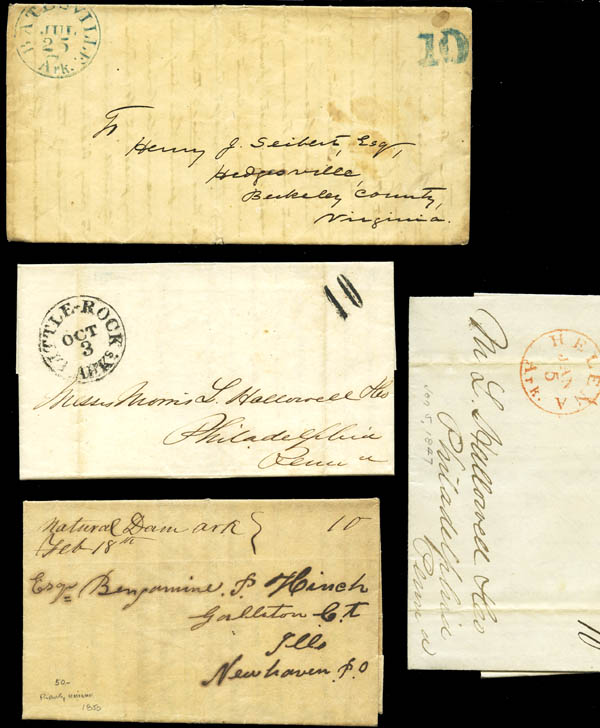 BATESVILLE
JUL
25
Ark.
10
To
Henry J. Seibert, Esq,
Hedgesville,
Berkeley County,
Virginia.
LITTLE-ROCK
OCT
3
ARKs
10
Messrs Morris L. Hallowell & Co
Philadelphia
Penna
HELENA
JAN
5
Ark.
M. L. Hallowell & Co
Philadelphia
Penna
Jan 5, 1847
10
Natural Dam ark
Feb 18th
10
Esqr Benjamine. P Hinch
Gallston C.t
Ills
Newhaven P.O
50-
1850